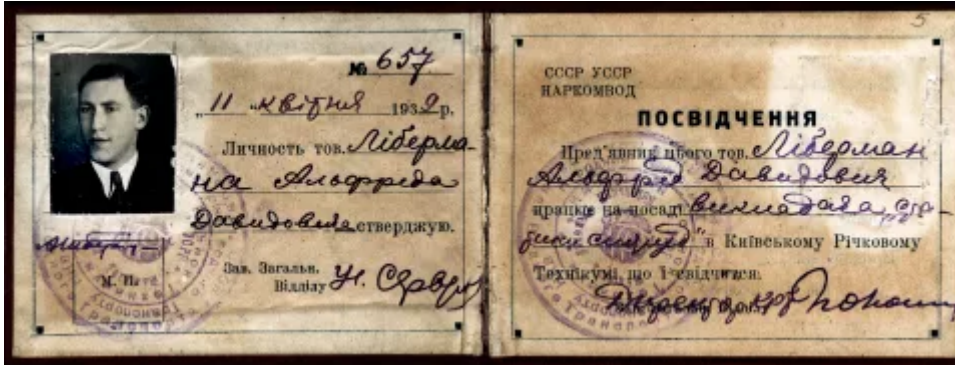 № 657
„ 11 " квітня 1939 р.
Личность тов. Ліберма-
на Альфреда
Давидовича стверджую.
Зав. Загальн.
Відділу
М. П.
5
СССР УССР
НАРКОМВОД
ПОСВІДЧЕННЯ
Пред'явник цього тов. Ліберман
Альфред Давидович
працює на посаді викладача „ста-
тики " в Київському Річковому
Технікумі, що і свідчиться.